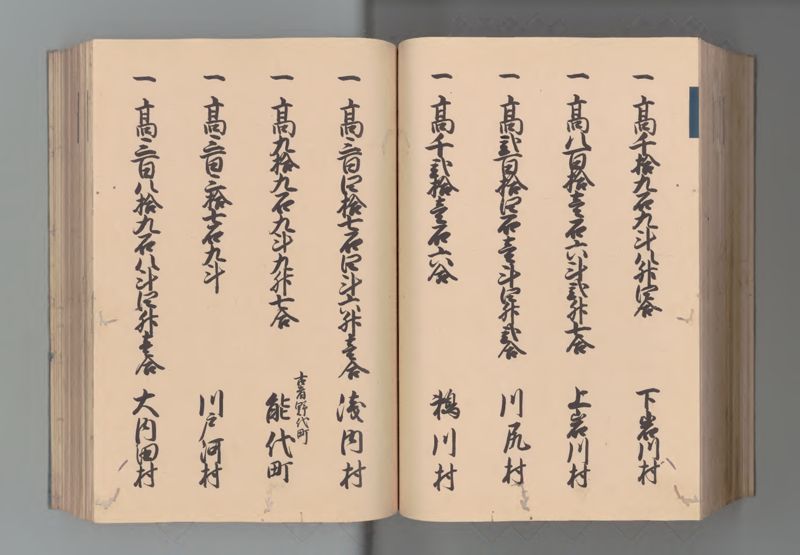 一 高千拾九石九斗八升四合 下岩川村
一 高八百拾壱石六斗弐升七合 上岩川村
一 高弐百拾四石壱斗四升弐合 川尻村
一 高千弐拾壱石六合 鵜川村
一 高三百四拾七石四斗六升壱合 浅内村
一 高九拾九石九斗九升七合 古者野代町 能代町
一 高三百三拾七石九斗 川戸河村
一 高三百八拾九石八斗四升壱合 大内田村